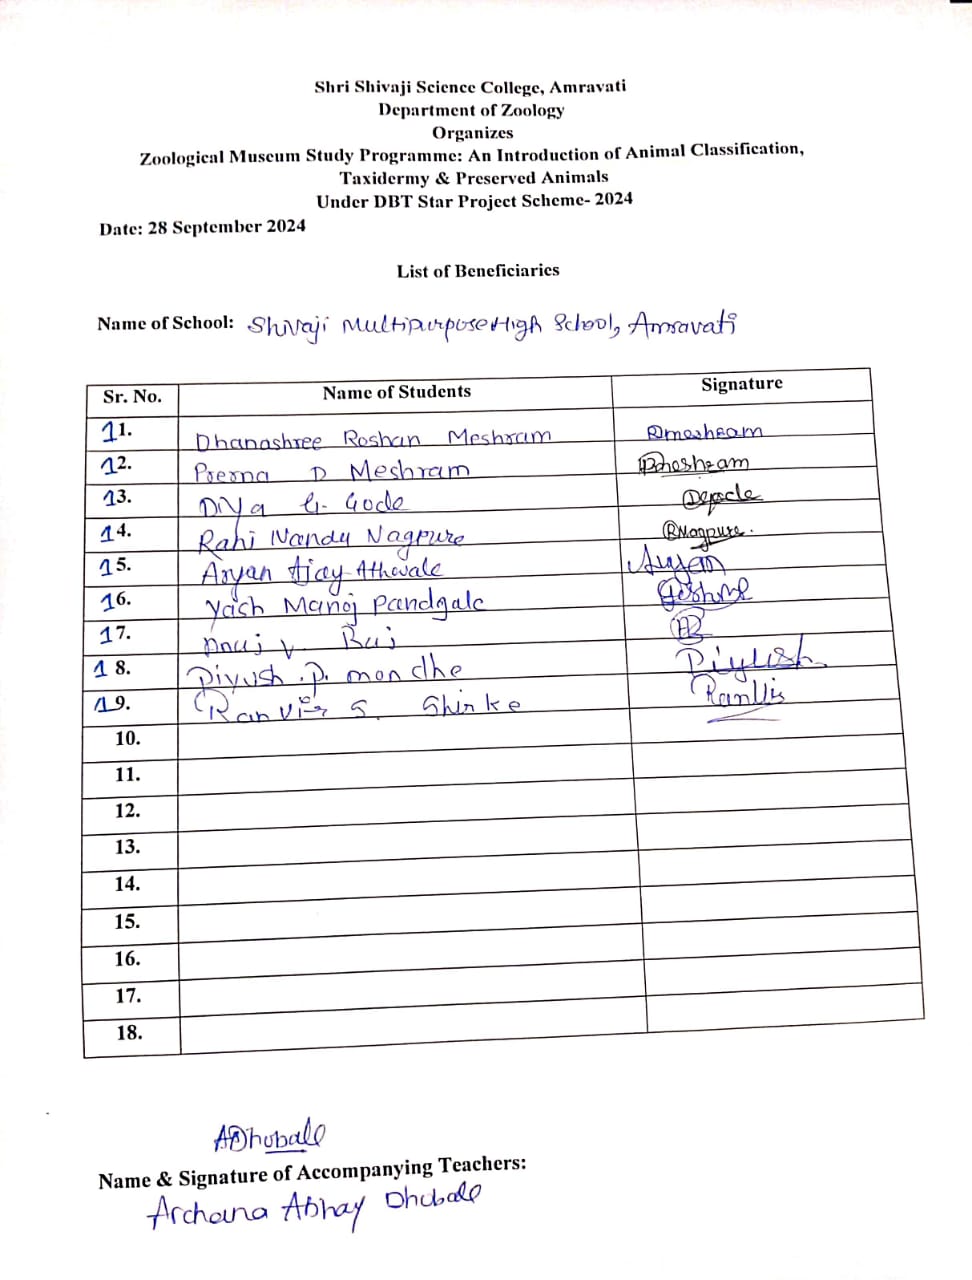 Shri Shivaji Science College, Amravati
Department of Zoology
Organizes
Zoological Museum Study Programme: An Introduction of Animal Classification,
Taxidermy & Preserved Animals
Under DBT Star Project Scheme- 2024
Date: 28 September 2024
List of Beneficiaries
Name of School: Shivaji Multipurpose High School, Amravati
Sr. No. Name of Students Signature
11. Dhanashree Roshan Meshram
12. Prerna D Meshram
13. Diya G. Gode
14. Rahi Nandu Nagpure RNagpure.
15. Aryan Ajay Athawale Aryan
16. Yash Manoj Pandgale
17. Anuj V
18. Piyush .P. mondhe Piyush
19. Ranvir S. Shinke
10.
11.
12.
13.
14.
15.
16.
17.
18.
ADhobale
Name & Signature of Accompanying Teachers:
Archana Abhay Dhobale